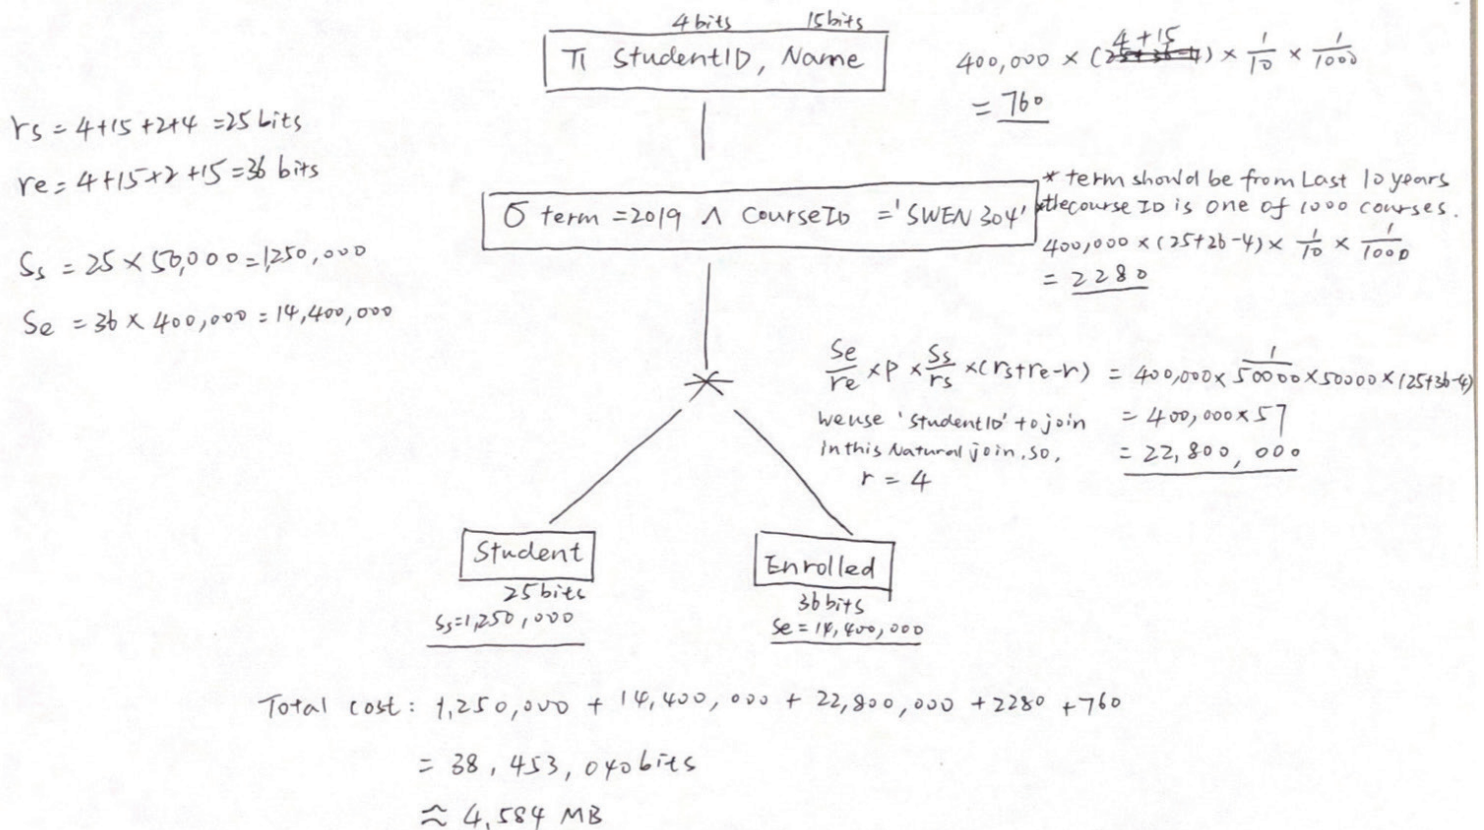 4 bits 15 bits
π StudentID, Name
400,000 × (4+15) × 1/10 × 1/1000
= 760
rs = 4+15+2+4 = 25 bits
re = 4+15+2+15 = 36 bits
Ss = 25 × 50,000 = 1,250,000
Se = 36 × 400,000 = 14,400,000
σ term = 2019 ∧ CourseID = 'SWEN 304'
* term should be from Last 10 years
*the course ID is one of 1000 courses.
400,000 × (25+36-4) × 1/10 × 1/1000
= 2280
*
Se/re × P × Ss/rs × (rs+re-r) = 400,000 × 1/50000 × 50000 × (25+36-4)
we use 'StudentID' to join = 400,000 × 57
in this Natural join, so, = 22,800,000
r = 4
Student
25 bits
Ss=1,250,000
Enrolled
36 bits
Se = 14,400,000
Total cost: 1,250,000 + 14,400,000 + 22,800,000 + 2280 + 760
= 38,453,040 bits
≈ 4.584 MB